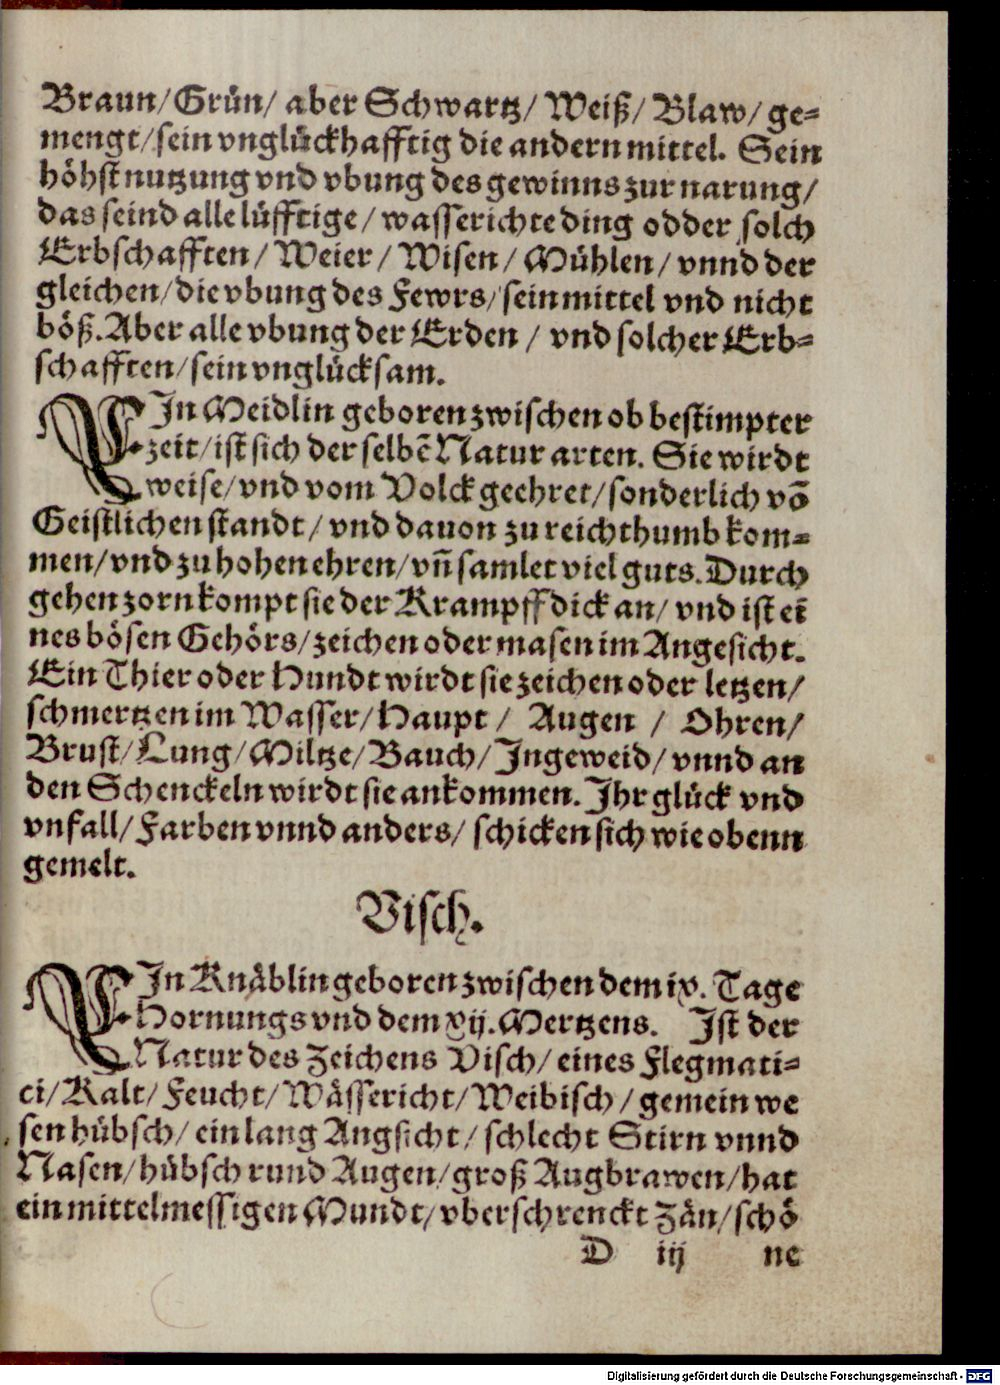 Braun/Grün/ aber Schwartz/ Weiß/ Blaw/ ge-
mengt/sein vnglückhafftig die andern mittel. Sein
höhst nutzung vnd vbung des gewinns zur narung/
das seind alle lüfftige/ wasserichte ding odder solch
Erbschafften/ Weier/ Wisen/ Mühlen/ vnnd der
gleichen/die vbung des Fewrs/sein mittel vnd nicht
böß. Aber alle vbung der Erden / vnd solcher Erb-
schafften/sein vnglücksam.
EIn Meidlin geboren zwischen ob bestimpter
zeit/ist sich der selbē Natur arten. Sie wirdt
weise/vnd vom Volck geehret/sonderlich vō
Geistlichen standt/ vnd dauon zu reichthumb kom-
men/vnd zu hohen ehren/vñ samlet viel guts. Durch
gehen zorn kompt sie der Krampff dick an/ vnd ist eī
nes bösen Gehörs/zeichen oder masen im Angesicht.
Ein Thier oder Hundt wirdt sie zeichen oder letzen/
schmertzen im Wasser/Haupt / Augen / Ohren/
Brust/Lung/Miltze/Bauch/Ingeweid/vnnd an
den Schenckeln wirdt sie ankommen. Ihr glück vnd
vnfall/Farben vnnd anders/ schicken sich wie obenn
gemelt.
Visch.
EIn Knäblin geboren zwischen dem ix. Tage
Hornungs vnd dem xij. Mertzens. Ist der
Natur des Zeichens Visch/ eines Flegmati-
ci/Kalt/Feucht/Wässericht/Weibisch/gemein we
sen hübsch/ ein lang Angsicht/ schlecht Stirn vnnd
Nasen/hübsch rund Augen/groß Augbrawen/hat
ein mittelmessigen Mundt/vberschrenckt Zän/schö
D iij ne
Digitalisierung gefördert durch die Deutsche Forschungsgemeinschaft - DFG